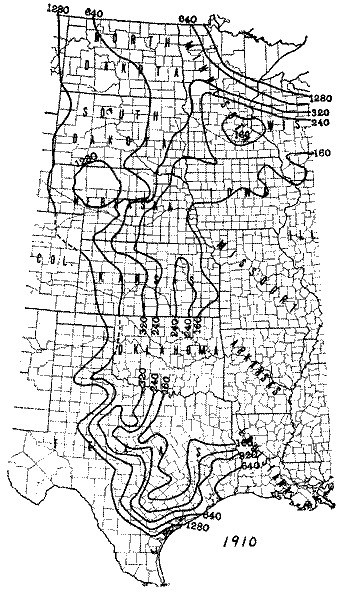 1280 640 640
NORTH
DAKOTA
MINN
1280
320
240
SOUTH
WIS
160
160
DAKOTA
1280
NEBRASKA
IOWA
ILL
MISSOURI
COL
KANSAS
320 240 240 240 160
OKLAHOMA
ARKANSAS
320 240 160
TEXAS
160
320
640
LOUISIANA
640
1280
1910